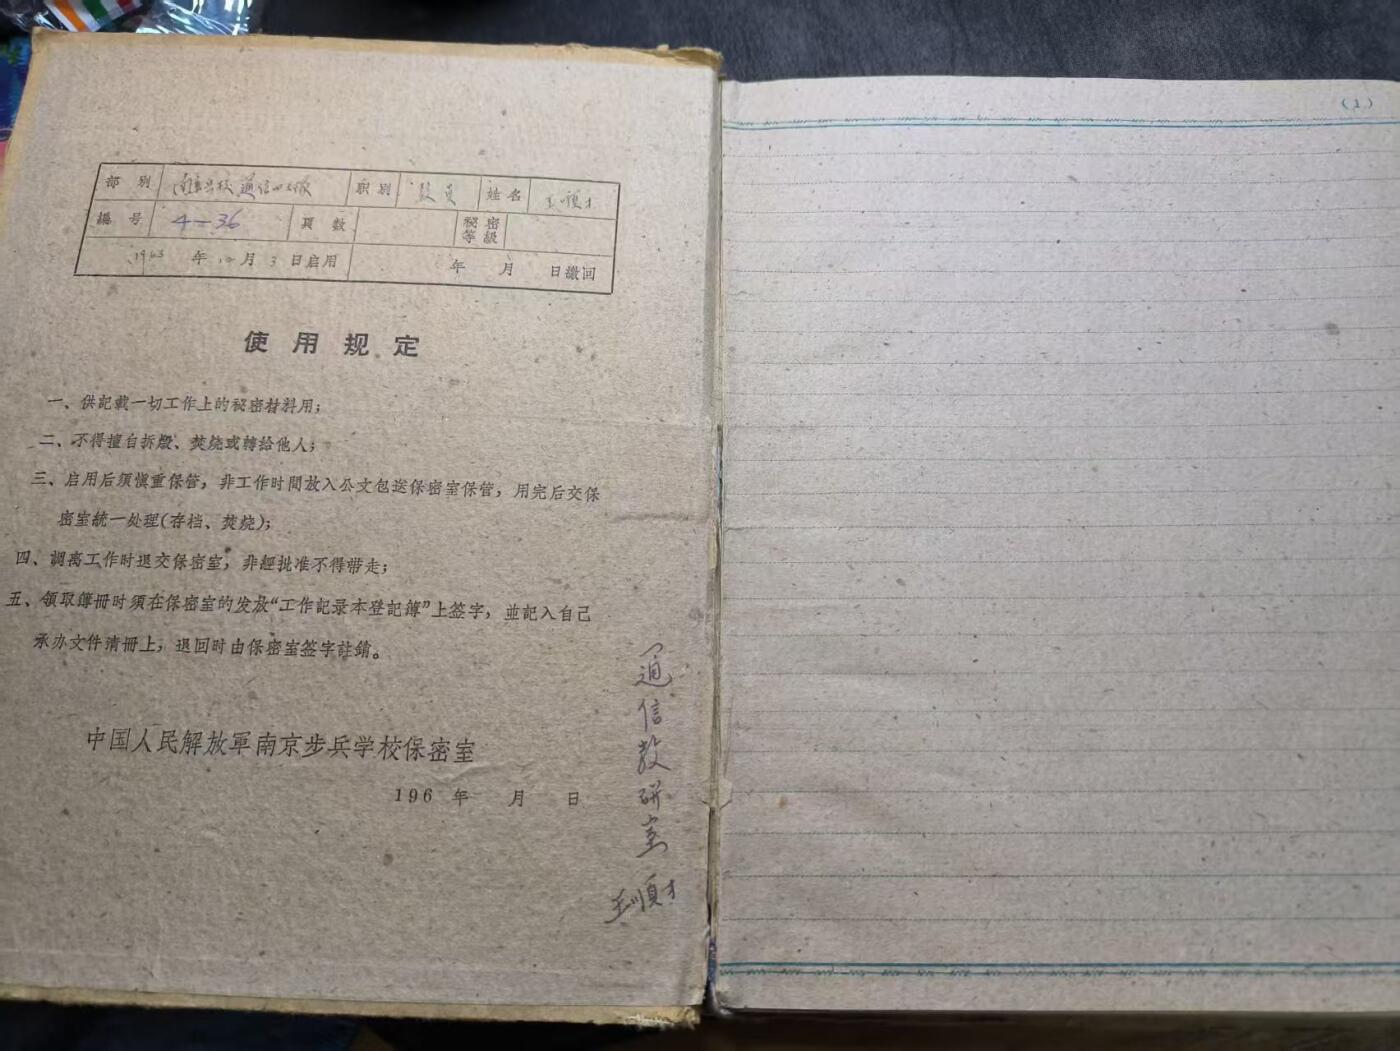 部別 南京步校通信 职別 教員 姓名 王順才
編号 4-36 頁数 秘密等級
1963年10月3日启用 年 月 日繳回
使用規定
一、供記載一切工作上的秘密材料用；
二、不得擅自拆燬、焚燒或轉給他人；
三、启用后须慎重保管，非工作时間放入公文包送保密室保管，用完后交保
密室統一处理（存档、焚燒）；
四、調离工作时退交保密室，非經批准不得带走；
五、領取簿冊时须在保密室的发放“工作記录本登記簿”上签字，並記入自己
承办文件清冊上，退回时由保密室签字註銷。
中国人民解放軍南京步兵学校保密室
196 年 月 日
通信教研室
王順才
(1)